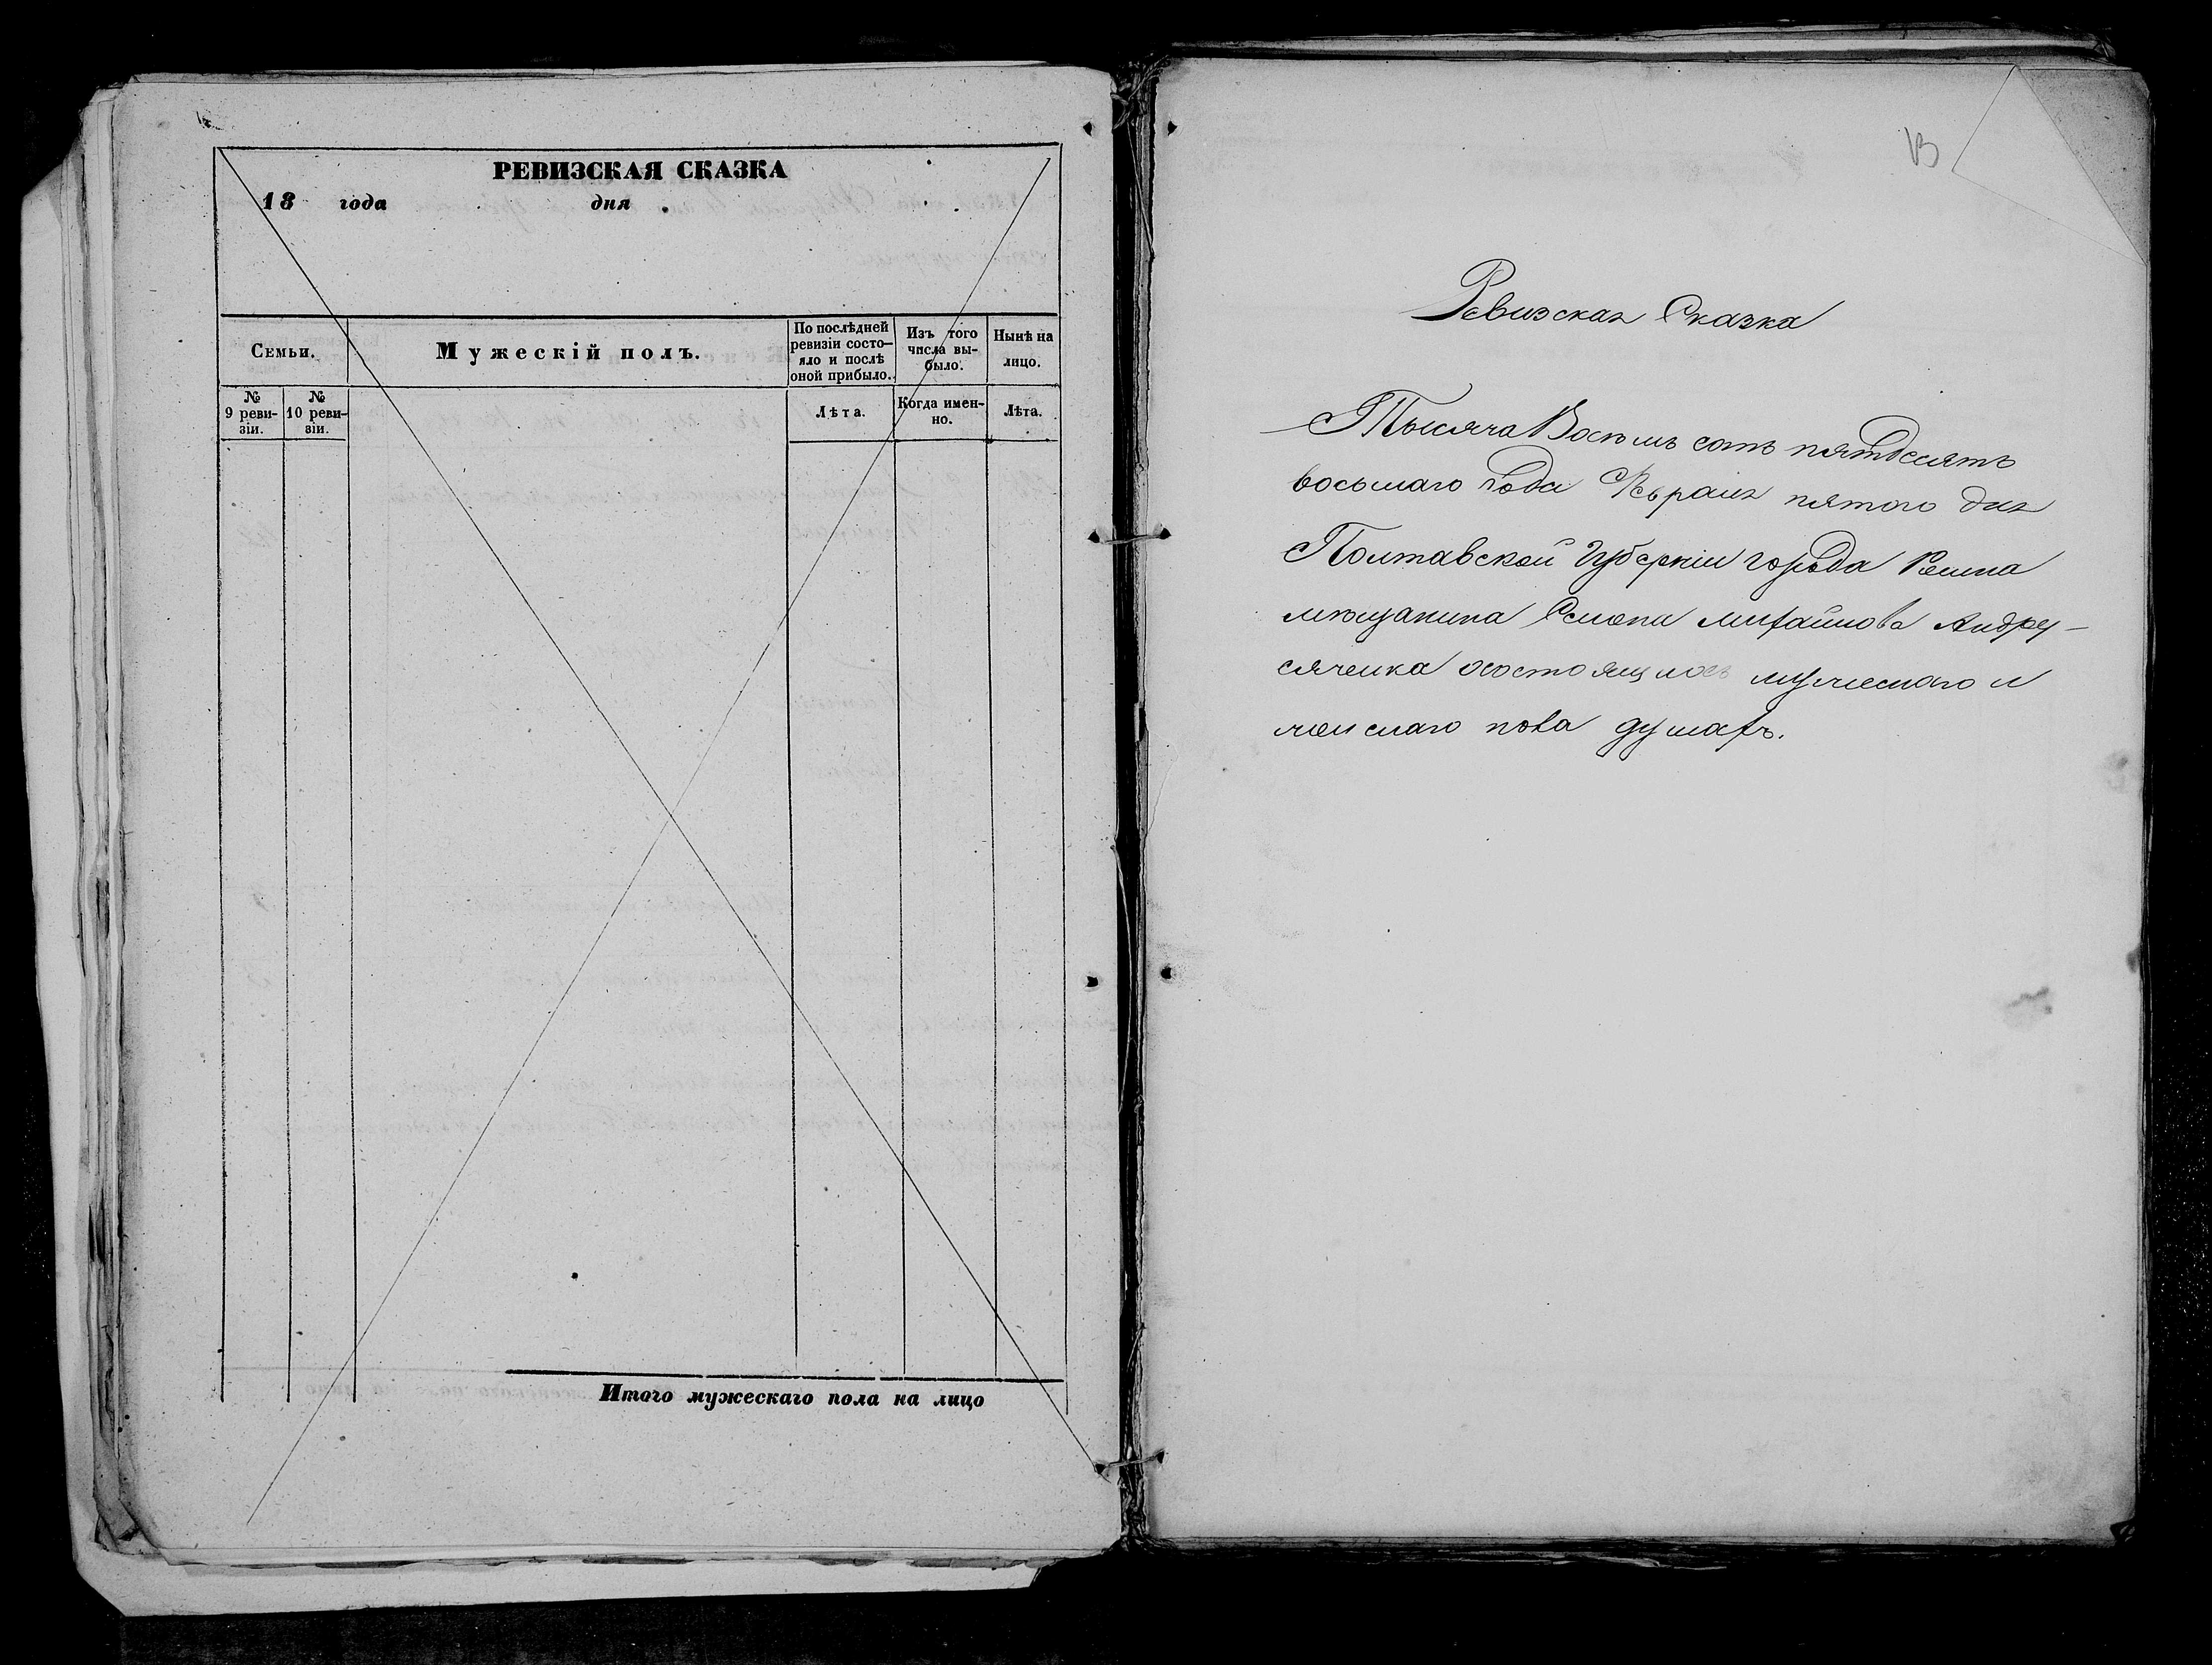 РЕВИЗСКАЯ СКАЗКА
18 года дня
Семьи.
Мужескій полъ.
По послѣдней
ревизіи состо-
яло и послѣ
оной прибыло.
Изъ того
числа вы-
было.
Нынѣ на
лицо.
№
9 реви-
зіи.
№
10 реви-
зіи.
Лѣта.
Когда имен-
но.
Лѣта.
Итого мужескаго пола на лицо
Ревизская Сказка
Тысяча Восемь сотъ пятдесятъ
восьмаго года Февраля пятого дня
Полтавской Губерніи города
мѣщанина Семена Михайлова Андру-
сяченка о состоящихъ мужескаго и
женскаго пола душахъ.